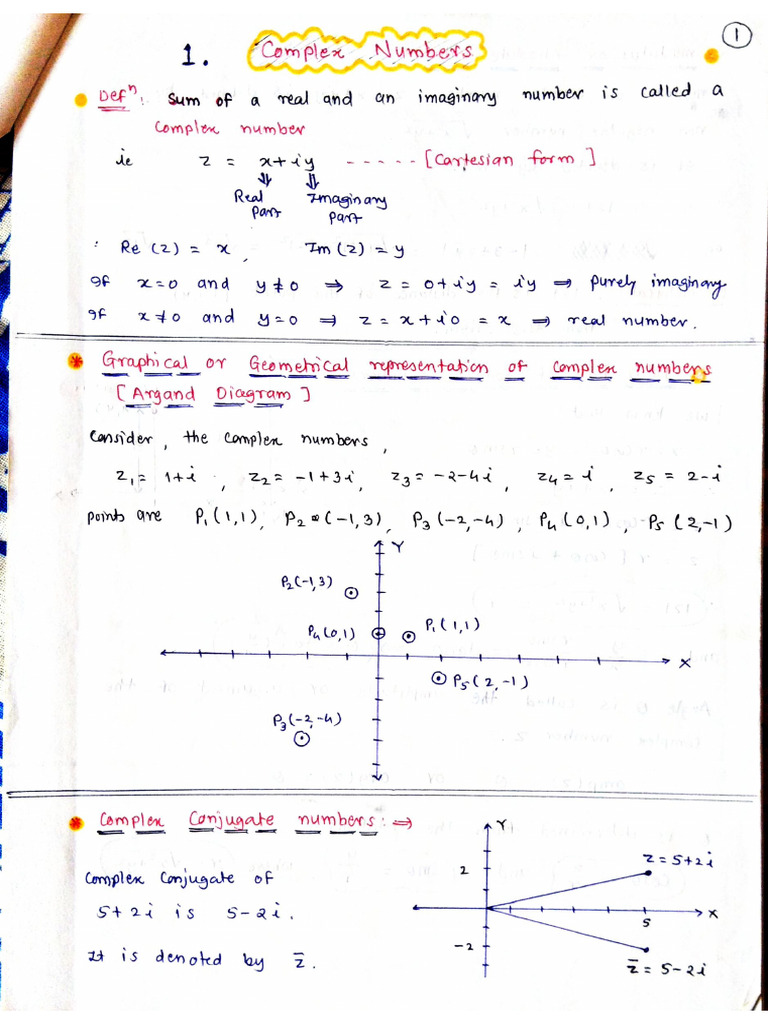 1
1. Complex Numbers
Defⁿ: Sum of a real and an imaginary number is called a
Complex number
ie z = x+iy ----- [Cartesian form]
Real Part Imaginary Part
∴ Re(z) = x, Im(z) = y
If x=0 and y≠0 ⇒ z = 0+iy = iy ⇒ purely imaginary
If x≠0 and y=0 ⇒ z = x+i0 = x ⇒ real number.
Graphical or Geometrical representation of complex numbers
[Argand Diagram]
Consider, the complex numbers,
z₁ = 1+i, z₂ = -1+3i, z₃ = -2-4i, z₄ = i, z₅ = 2-i
points are P₁(1,1), P₂(-1,3), P₃(-2,-4), P₄(0,1), P₅(2,-1)
Y
P₂(-1,3)
P₄(0,1) P₁(1,1)
X
P₅(2,-1)
P₃(-2,-4)
Complex Conjugate numbers: ⇒
Complex Conjugate of
5+2i is 5-2i.
It is denoted by z̄.
Y
z = 5+2i
2
5 X
-2
z̄ = 5-2i